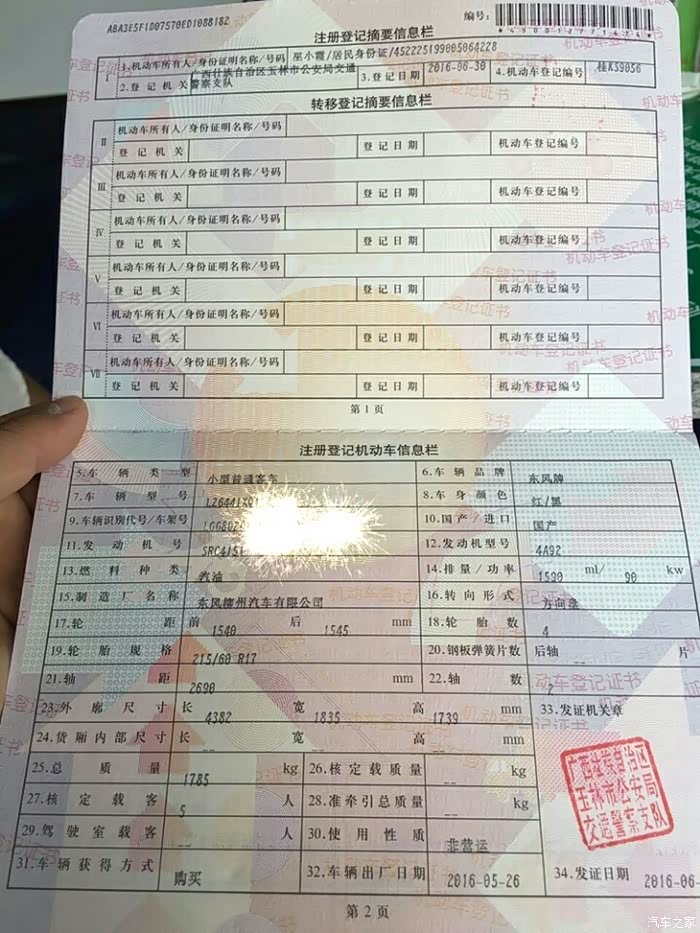 ABA3E5F1D07570ED1088182
编号:
注册登记摘要信息栏
I
1.机动车所有人/身份证明名称/号码 巫小霞/居民身份证/452225199005064228
2.登记机关 广西壮族自治区玉林市公安局交通警察支队 3.登记日期 2016-06-30 4.机动车登记编号 桂KS9056
转移登记摘要信息栏
II 机动车所有人/身份证明名称/号码
登记机关 登记日期 机动车登记编号
III 机动车所有人/身份证明名称/号码
登记机关 登记日期 机动车登记编号
IV 机动车所有人/身份证明名称/号码
登记机关 登记日期 机动车登记编号
V 机动车所有人/身份证明名称/号码
登记机关 登记日期 机动车登记编号
VI 机动车所有人/身份证明名称/号码
登记机关 登记日期 机动车登记编号
VII 机动车所有人/身份证明名称/号码
登记机关 登记日期 机动车登记编号
第1页
注册登记机动车信息栏
5.车辆类型 小型普通客车 6.车辆品牌 东风牌
7.车辆型号 8.车身颜色 红/黑
9.车辆识别代号/车架号 10.国产/进口 国产
11.发动机号 12.发动机型号 4A92
13.燃料种类 汽油 14.排量/功率 1590 ml/ 90 kw
15.制造厂名称 东风柳州汽车有限公司 16.转向形式 方向盘
17.轮距 前 1540 后 1545 mm 18.轮胎数 4
19.轮胎规格 215/60 R17 20.钢板弹簧片数 后轴 -- 片
21.轴距 2690 mm 22.轴数 2
23.外廓尺寸 长 4382 宽 1835 高 1739 mm 33.发证机关章
24.货厢内部尺寸 长 -- 宽 -- 高 -- mm
25.总质量 1785 kg 26.核定载质量 -- kg
27.核定载客 5 人 28.准牵引总质量 -- kg
29.驾驶室载客 -- 人 30.使用性质 非营运
31.车辆获得方式 购买 32.车辆出厂日期 2016-05-26 34.发证日期 2016-06-
广西壮族自治区
玉林市公安局
交通警察支队
第2页
汽车之家